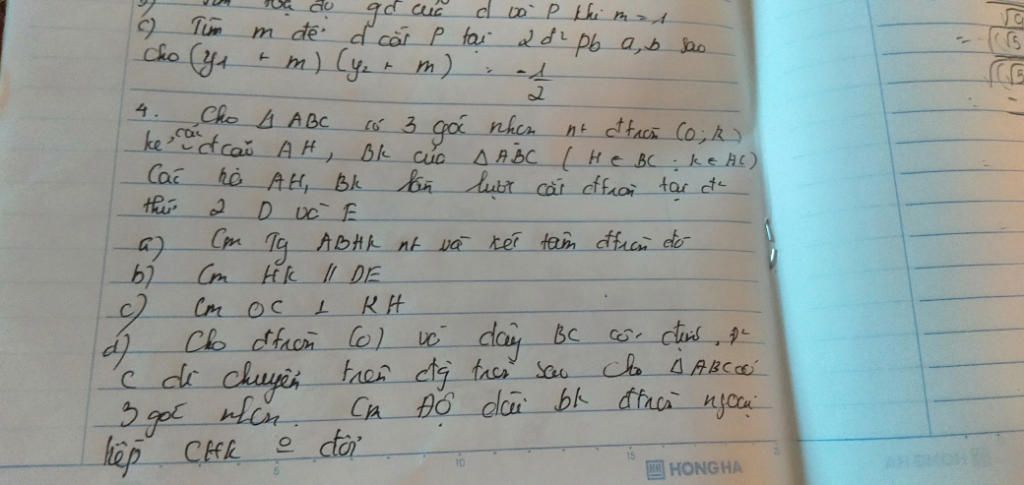 gđ của d với P khi m = 1
c) Tìm m để d cắt P tại 2 đ² pb a, b sao
cho (y₁ + m) (y₂ + m) = -1/2
4. Cho Δ ABC có 3 góc nhọn nt đtròn (O; R)
kẻ các đcao AH, BK của Δ ABC ( H ∈ BC ; K ∈ AC)
Các AH, BK lần lượt cắt đtròn tại đ²
thứ 2 D và E
a) Cm Tg ABHK nt và tâm đtròn đó
b) Cm HK // DE
c) Cm OC ⊥ KH
d) Cho đtròn (O) và dây BC cố định, đ²
C di chuyển trên sao cho Δ ABC có
3 góc nhọn. Cm ĐỘ dài bk đtròn ngoại
tiếp CHK đổi
5 10 15
HONG HA